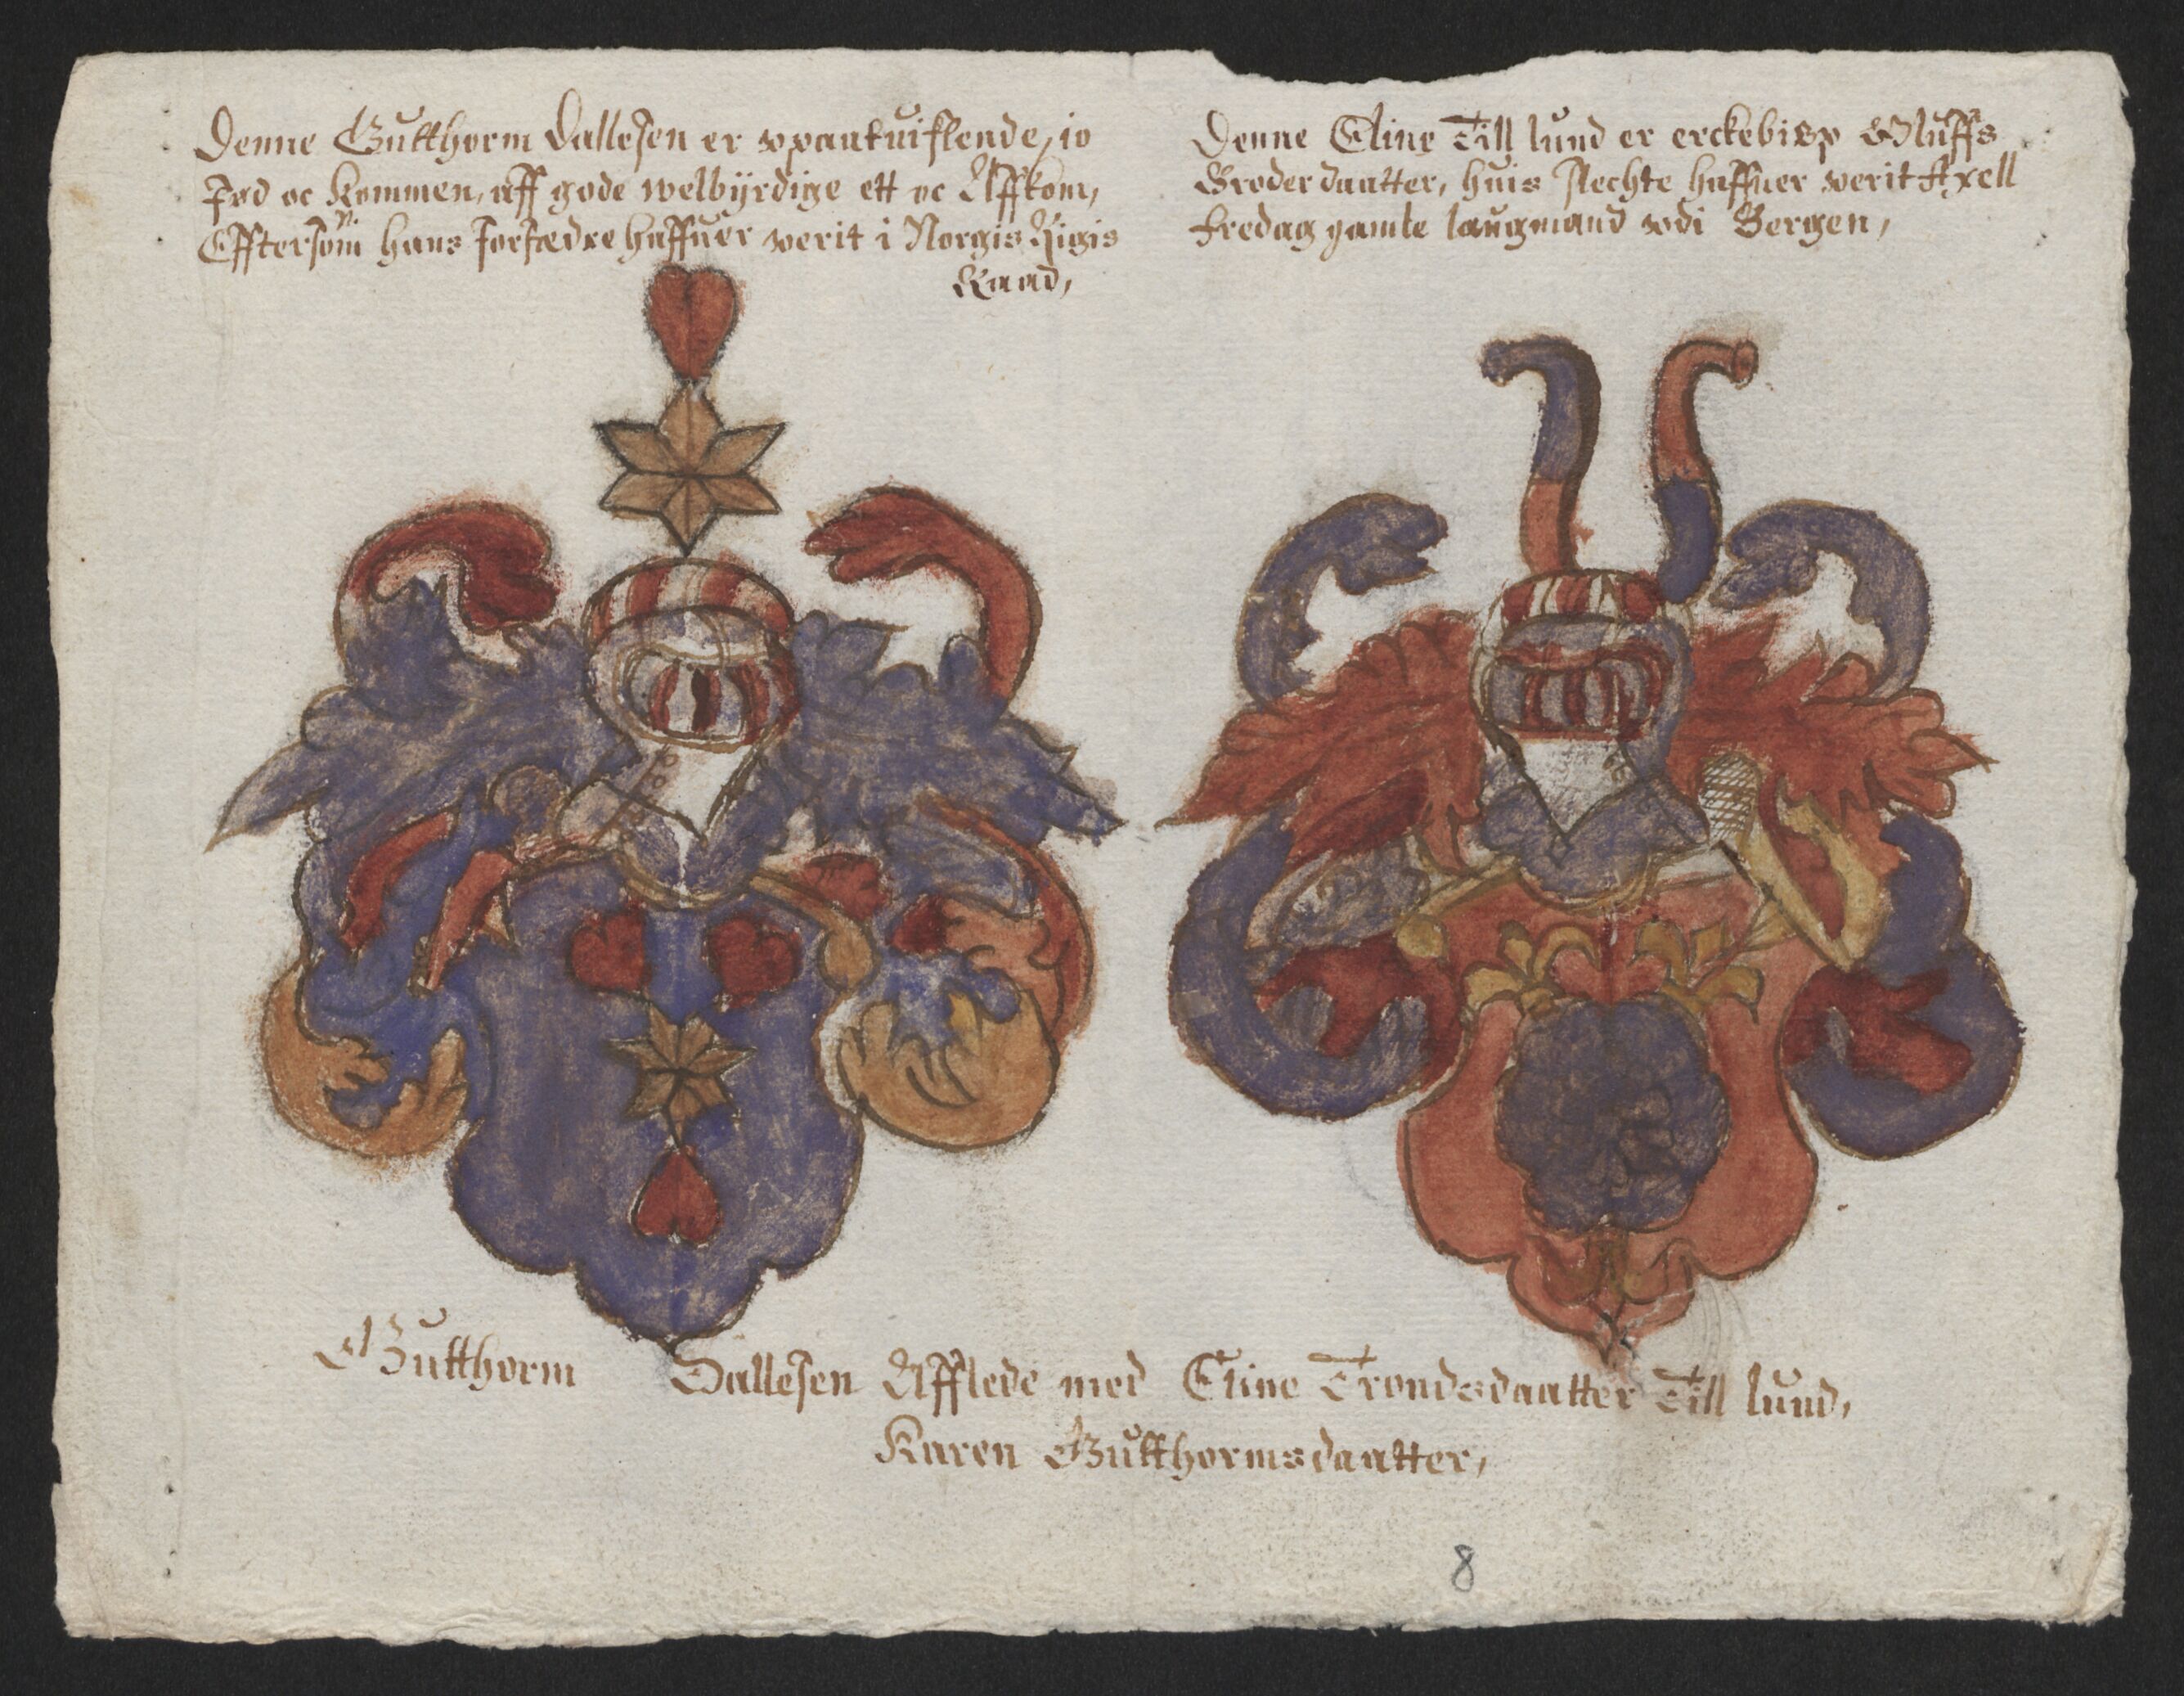 Denne Gutthorm Dallesen er wpaatuiflende, io
Fød oc kommen, aff gode welbÿrdige ett oc Affkom,
Efftersom hans forfædre haffuer werit i Norgis Rigis
Raad,
Denne Eline Till lund er erckebisp Oluffs
Broder daatter, huis slechte haffuer werit Axell
fredag gamle laugmand wdi Bergen,
Gutthorm Dallesen Afflede med Eline Trondsdaatter Till lund,
Karen Gutthormsdaatter,
8